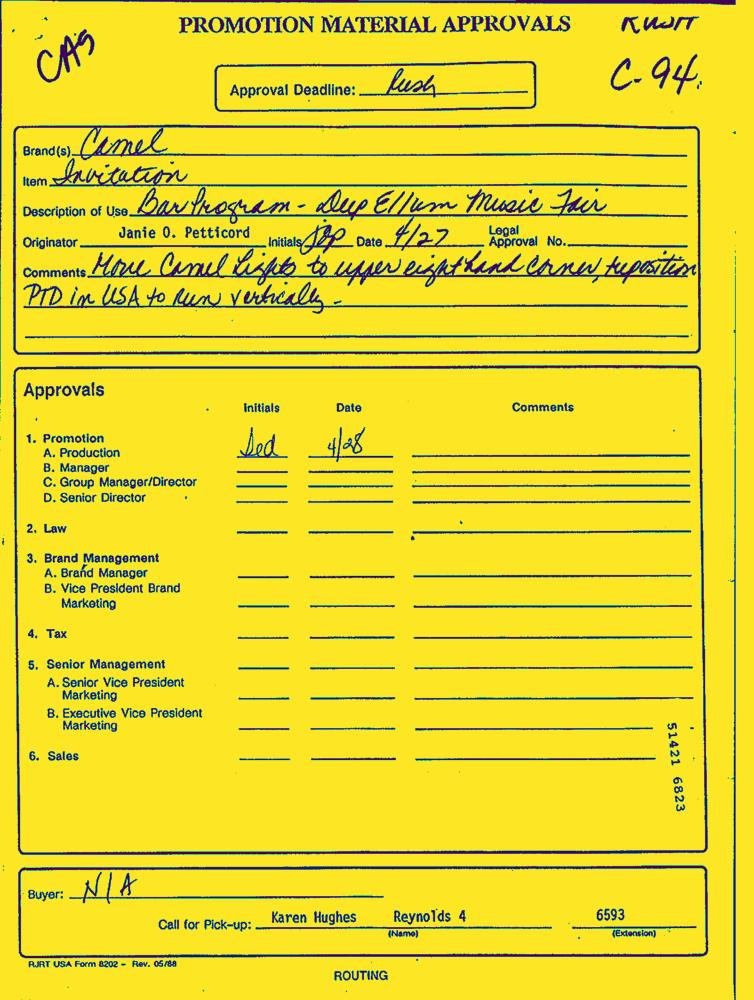 PROMOTION MATERIAL APPROVALS
CAS
C-94
Approval Deadline: Rush
Brand(s) Camel
Item Invitation
Description of Use Bar Program - Deep Ellum Music Fair
Originator Janie O. Petticord Initials JOP Date 4/27 Legal Approval No.
Comments Move Camel Lights to upper right hand corner, reposition
PTD in USA to run vertically -
Approvals
Initials Date Comments
1. Promotion
A. Production 4/28
B. Manager
C. Group Manager/Director
D. Senior Director
2. Law
3. Brand Management
A. Brand Manager
B. Vice President Brand
Marketing
4. Tax
5. Senior Management
A. Senior Vice President
Marketing
B. Executive Vice President
Marketing
6. Sales
51421 6823
Buyer: N/A
Call for Pick-up: Karen Hughes Reynolds 4 6593
(Name) (Extension)
RJRT USA Form 8202 - Rev. 05/88
ROUTING